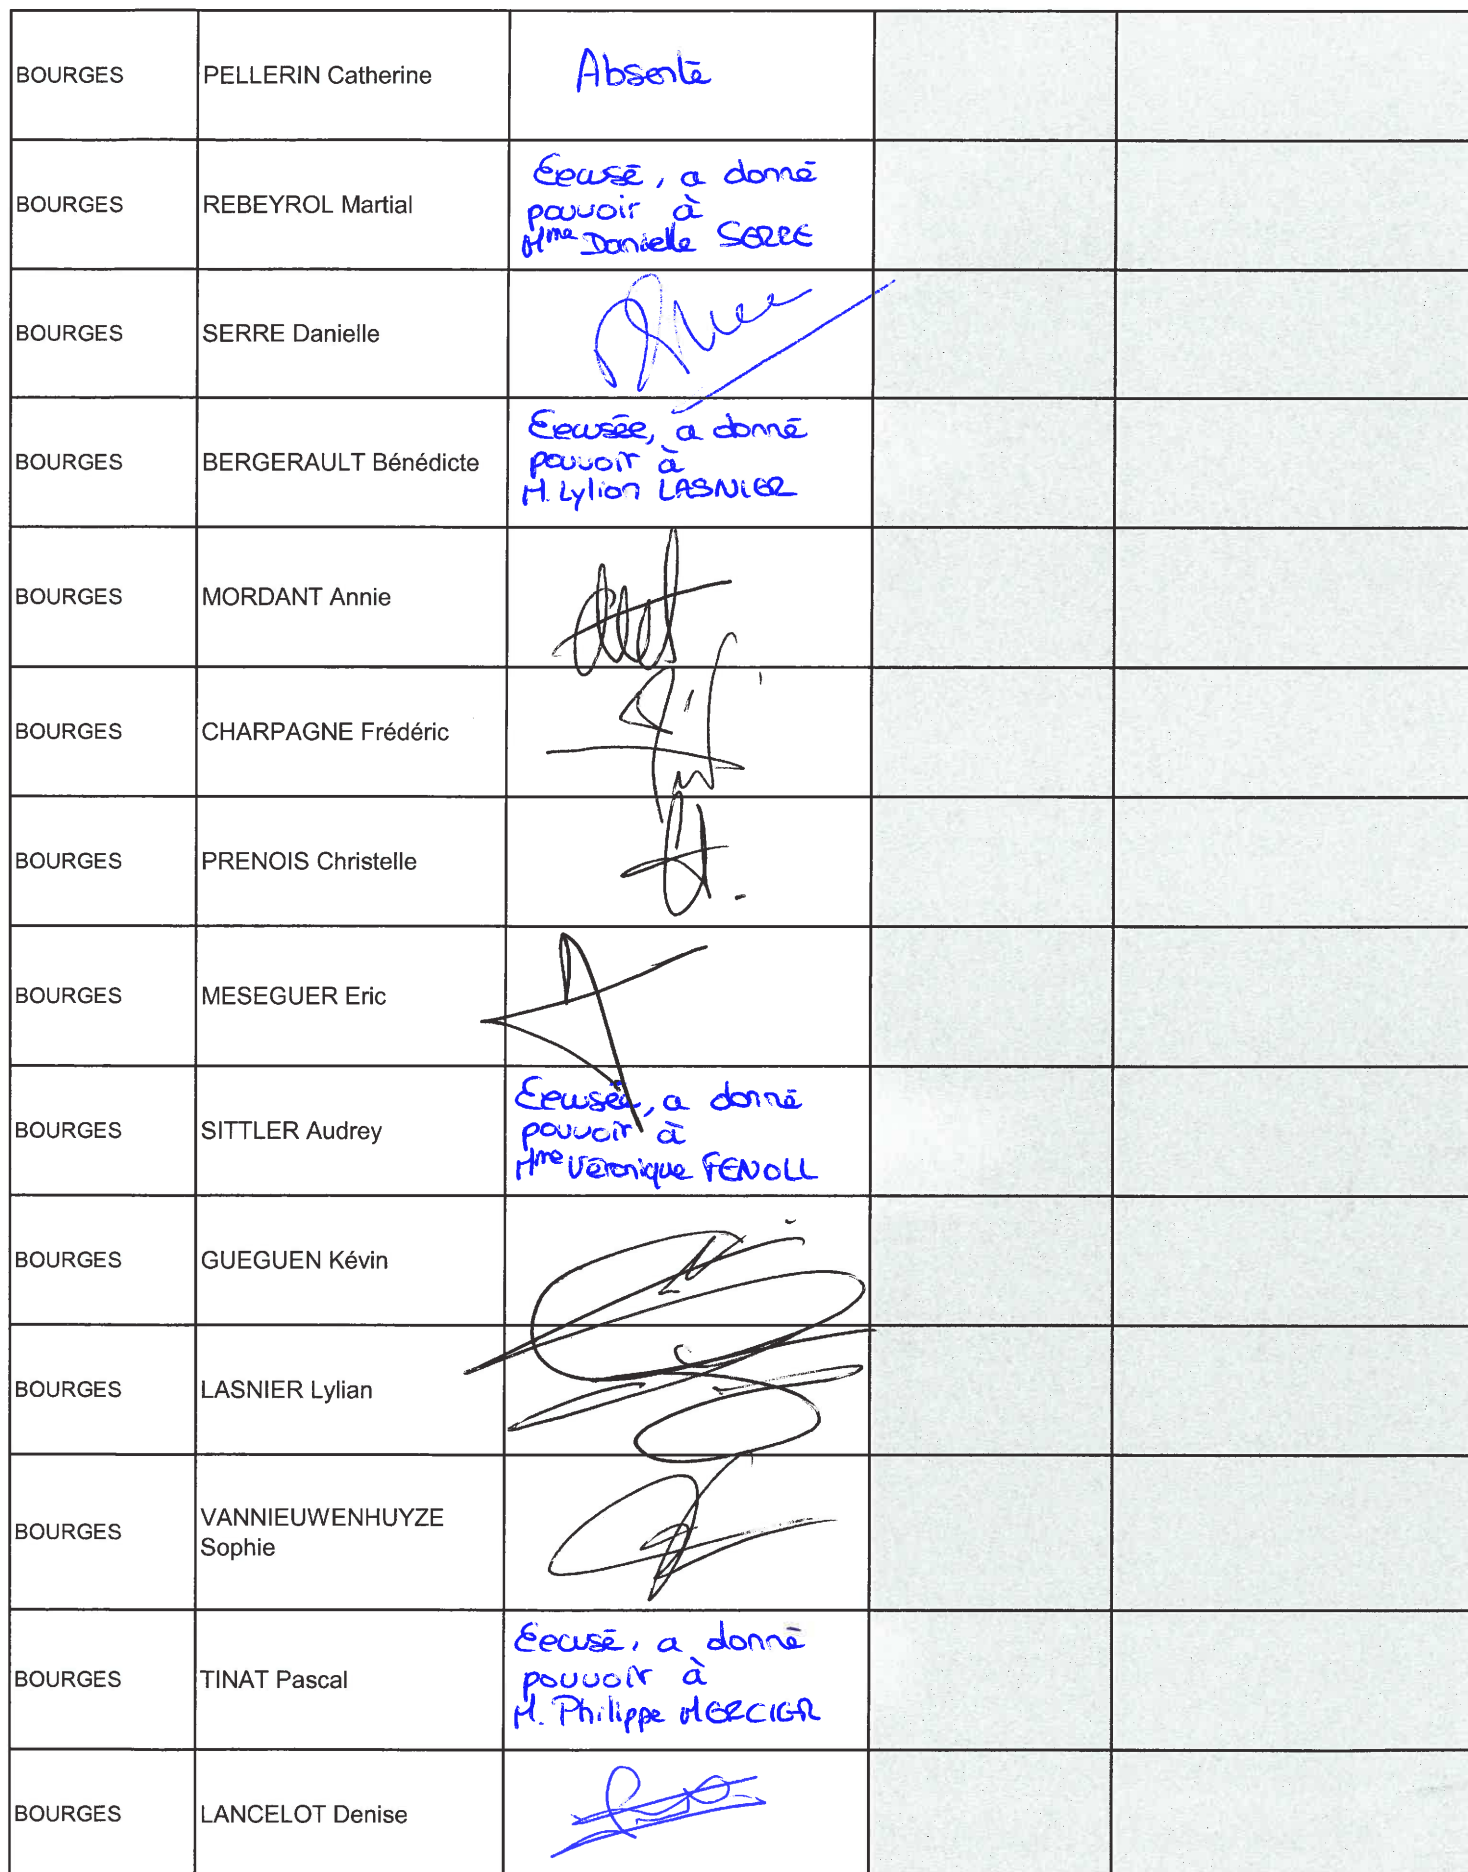 BOURGES PELLERIN Catherine Absente
BOURGES REBEYROL Martial Excusé, a donné
pouvoir à
Mme Danielle SERRE
BOURGES SERRE Danielle
BOURGES BERGERAULT Bénédicte Excusée, a donné
pouvoir à
M. Lylian LASNIER
BOURGES MORDANT Annie
BOURGES CHARPAGNE Frédéric
BOURGES PRENOIS Christelle
BOURGES MESEGUER Eric
BOURGES SITTLER Audrey Excusée, a donné
pouvoir à
Mme Véronique FENOLL
BOURGES GUEGUEN Kévin
BOURGES LASNIER Lylian
BOURGES VANNIEUWENHUYZE
Sophie
BOURGES TINAT Pascal Excusé, a donné
pouvoir à
M. Philippe MERCIER
BOURGES LANCELOT Denise